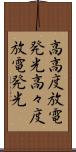 高高度放電
発光高々度
放電発光